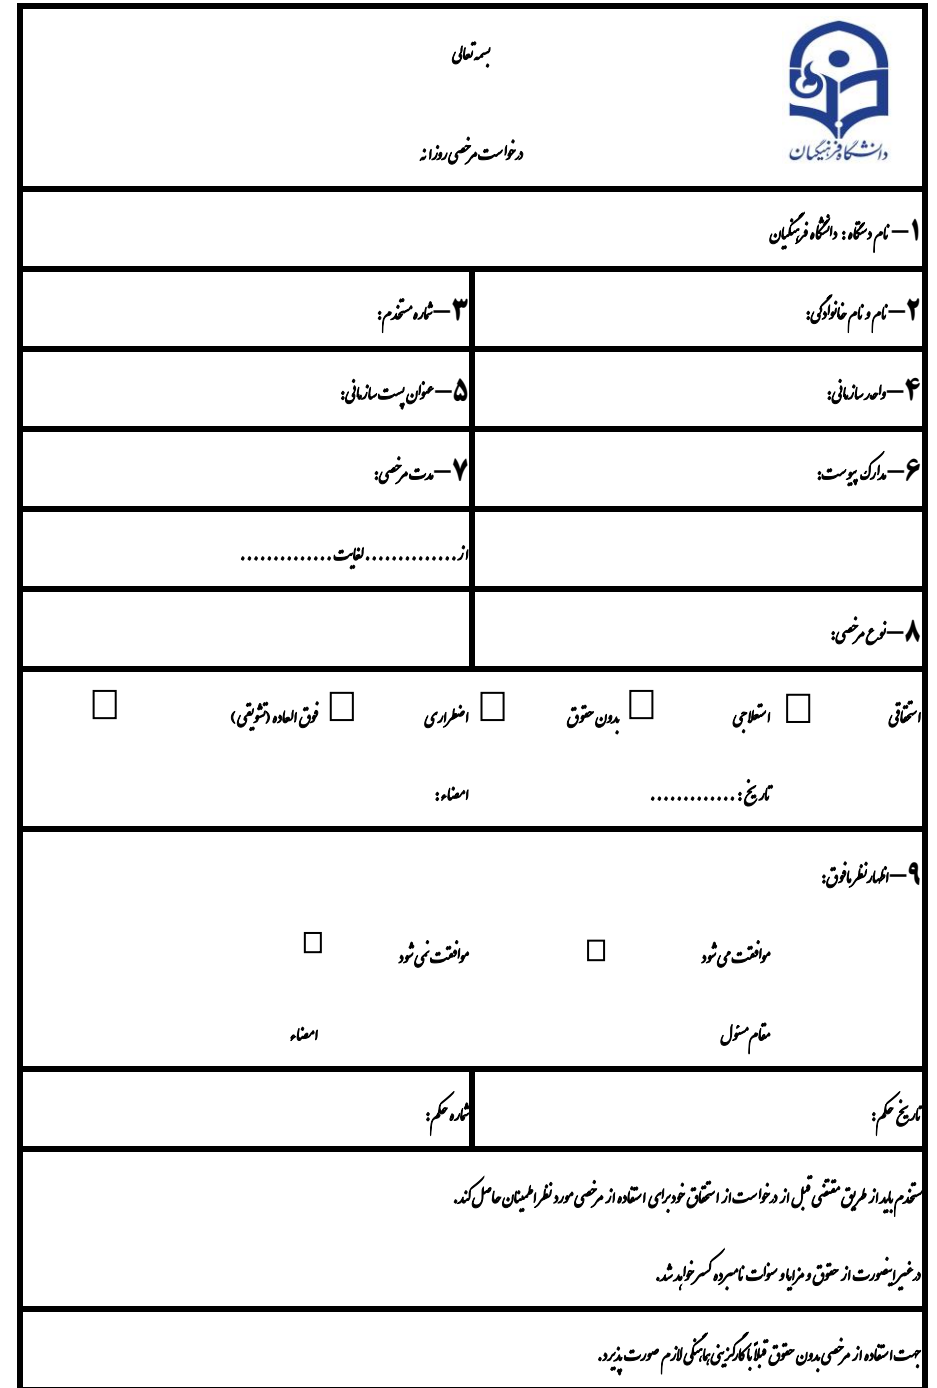 بسمه تعالی
دانشگاه فرهنگیان
درخواست مرخصی روزانه
۱– نام دستگاه : دانشگاه فرهنگیان
۲– نام و نام خانوادگی:
۳– شماره مستخدم:
۴– واحد سازمانی:
۵– عنوان پست سازمانی:
۶– مدارک پیوست:
۷– مدت مرخصی:
از.............. لغایت..............
۸– نوع مرخصی:
استحقاقی استعلاجی بدون حقوق اضطراری فوق العاده (تشویقی)
تاریخ :............. امضاء:
۹– اظهار نظر مافوق:
موافقت می شود موافقت نمی شود
مقام مسئول امضاء
تاریخ حکم: شماره حکم:
مستخدم باید از طریق مقتضی قبل از درخواست از استحقاق خود برای استفاده از مرخصی مورد نظر اطمینان حاصل کند.
در غیر اینصورت از حقوق و مزایا و سنوات نامبرده کسر خواهد شد.
جهت استفاده از مرخصی بدون حقوق قبلاً با کارگزینی هماهنگی لازم صورت پذیرد.